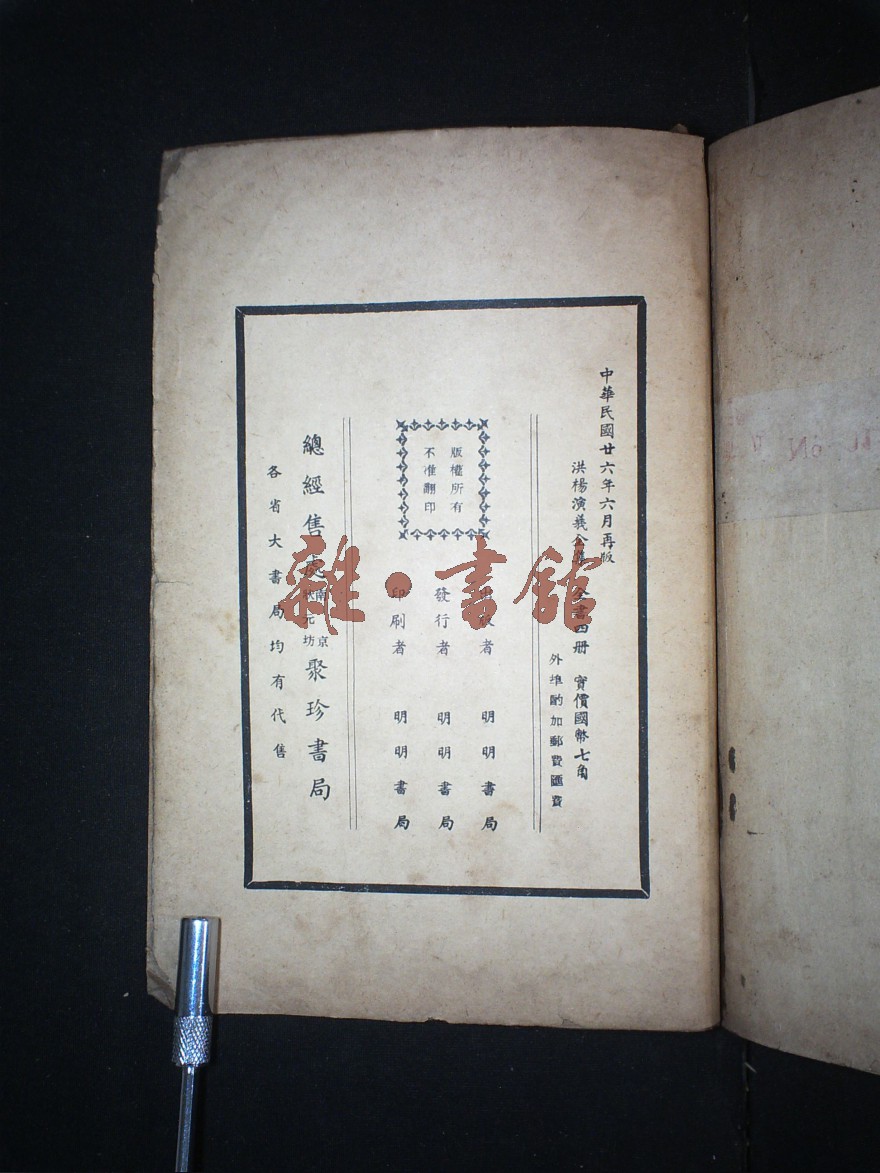 中華民國廿六年六月再版
洪楊演義全集 全書四册 實價國幣七角
外埠酌加郵費匯費
版權所有
不准翻印
出版者 明明書局
發行者 明明書局
印刷者 明明書局
總經售處 南京狀元坊 聚珍書局
各省大書局均有代售
雜·書館